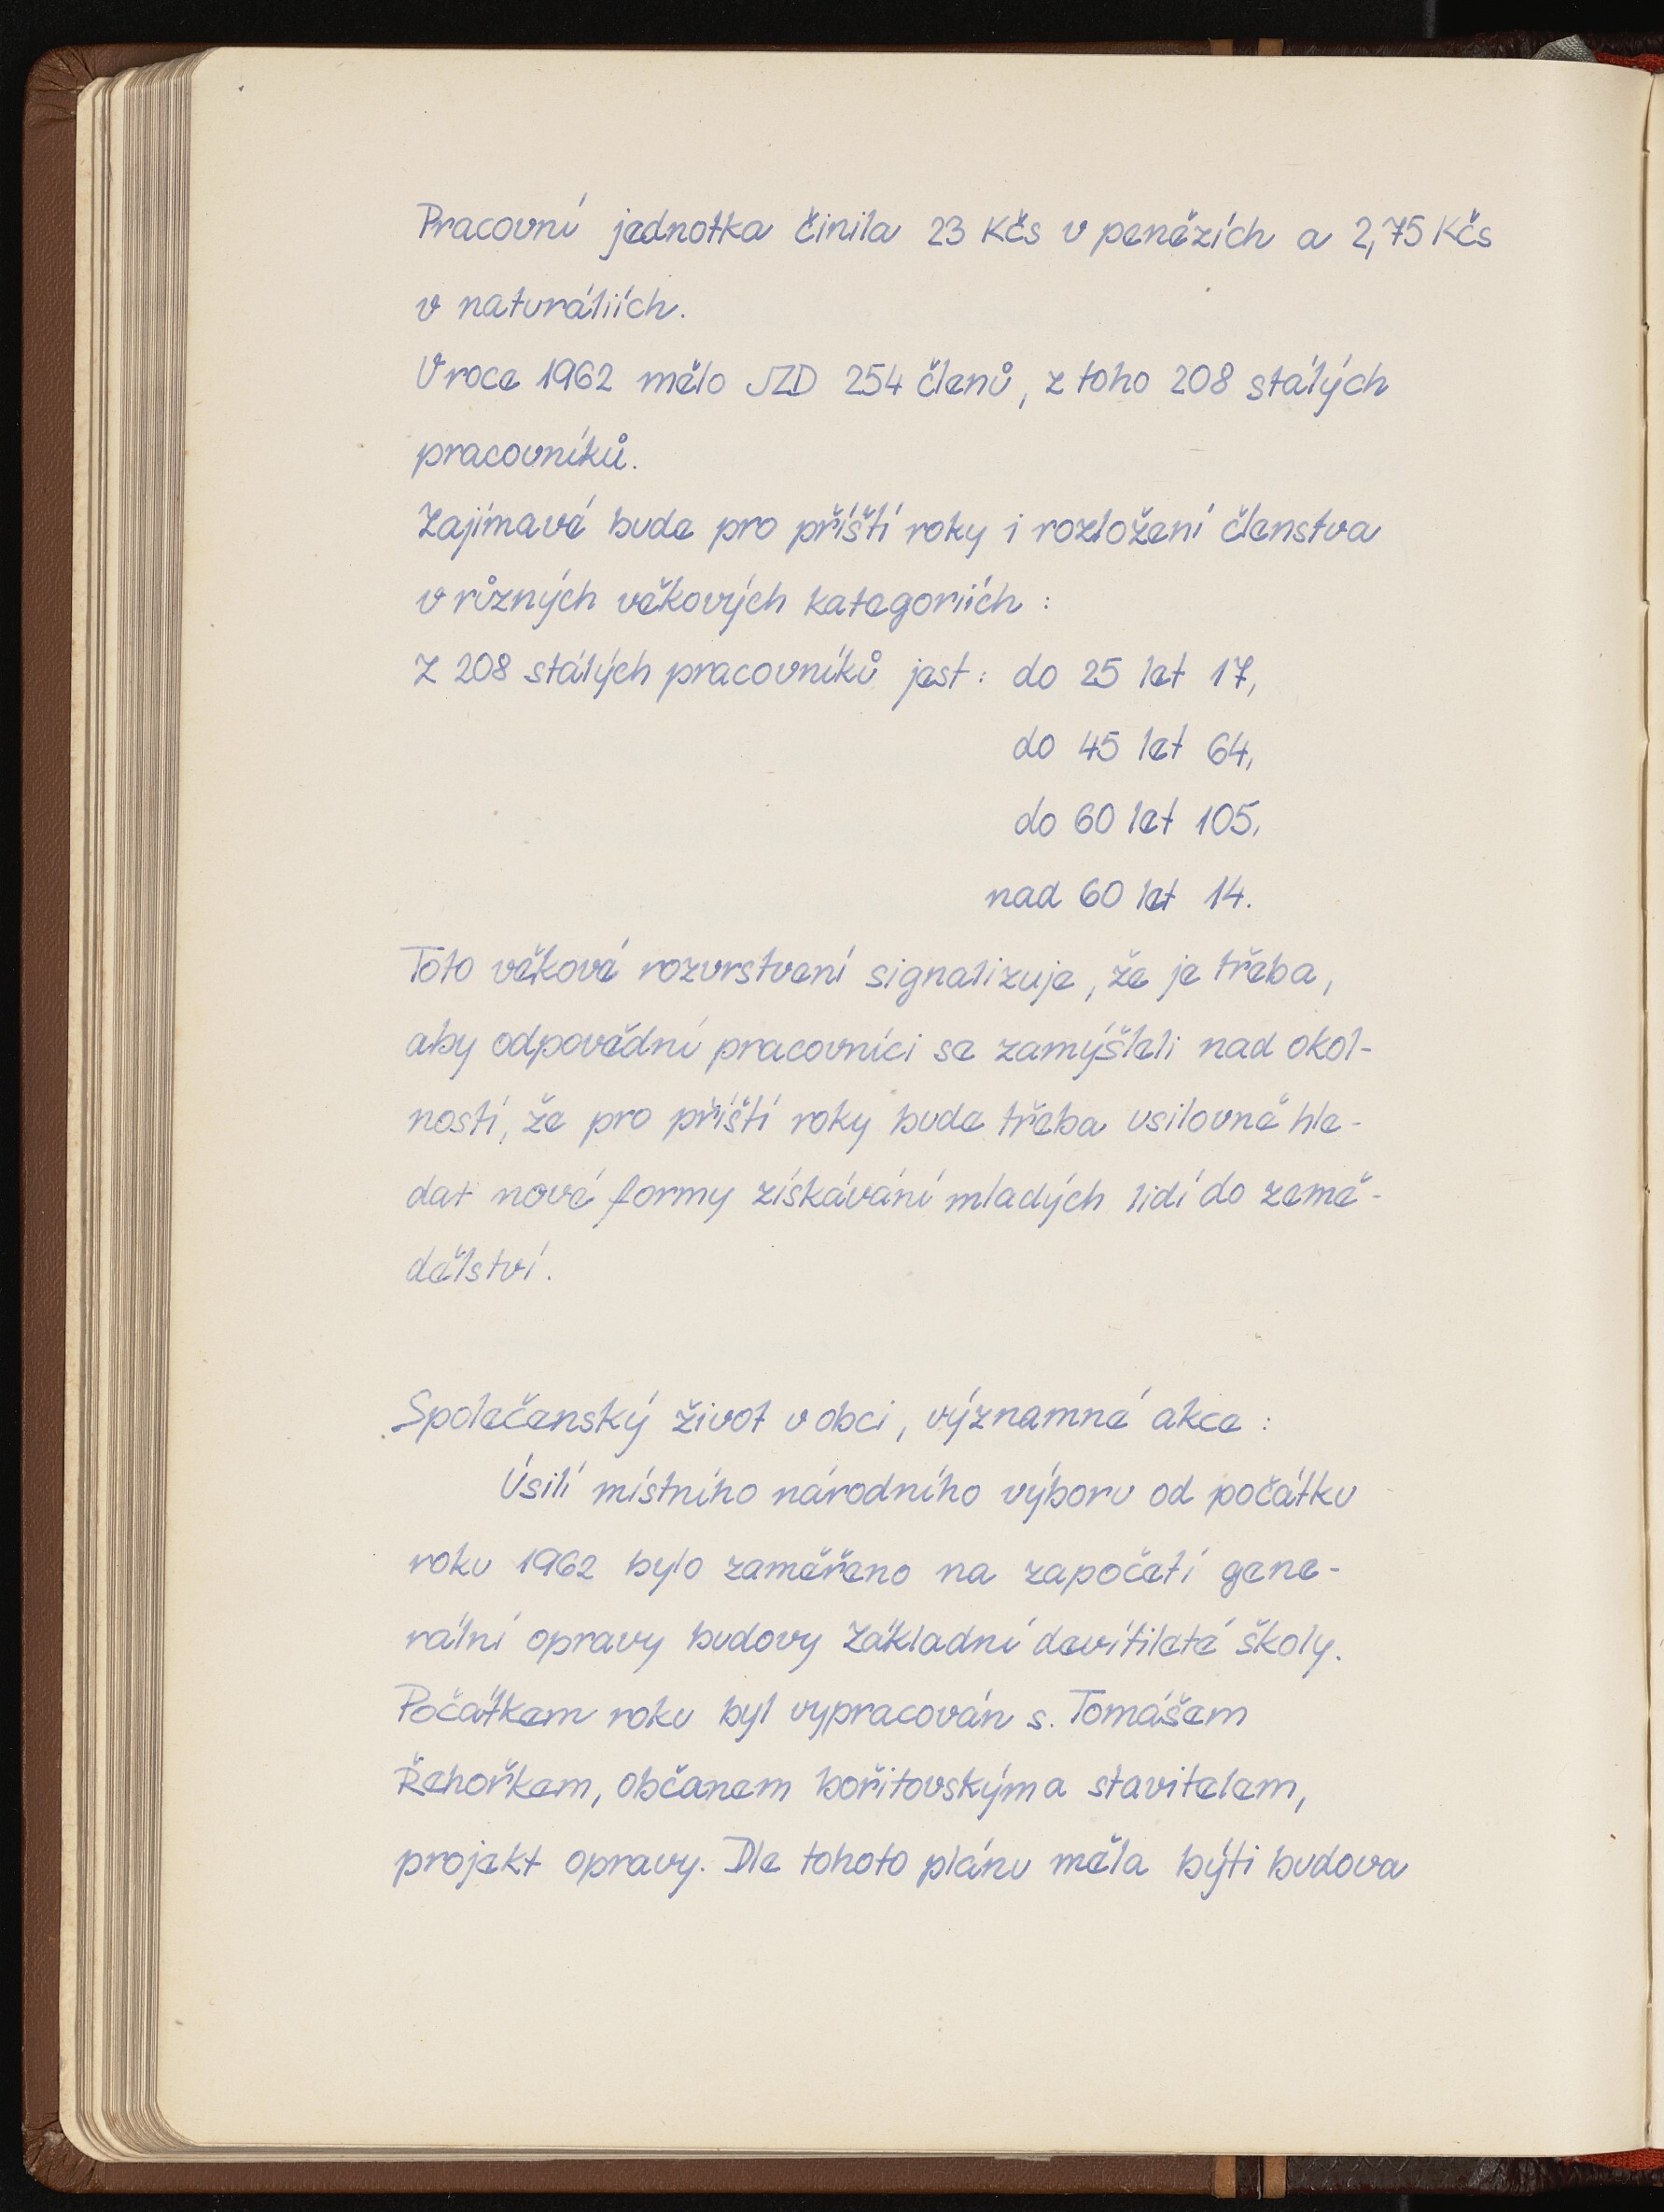 Pracovní jednotka činila 23 Kčs v penězích a 2,75 Kčs
v naturáliích.
V roce 1962 mělo JZD 254 členů, z toho 208 stálých
pracovníků.
Zajímavé bude pro příští roky i rozložení členstva
v různých věkových kategoriích :
Z 208 stálých pracovníků jest : do 25 let 17,
do 45 let 64,
do 60 let 105,
nad 60 let 14.
Toto věkové rozvrstvení signalizuje, že je třeba,
aby odpovědní pracovníci se zamýšleli nad okol-
ností, že pro příští roky bude třeba usilovně hle-
dat nové formy získávání mladých lidí do země-
dělství.
Společenský život v obci, významné akce :
Úsilí místního národního výboru od počátku
roku 1962 bylo zaměřeno na započetí gene-
rální opravy budovy Základní devítileté školy.
Počátkem roku byl vypracován s. Tomášem
Řehořkem, občanem bořitovským a stavitelem,
projekt opravy. Dle tohoto plánu měla býti budova